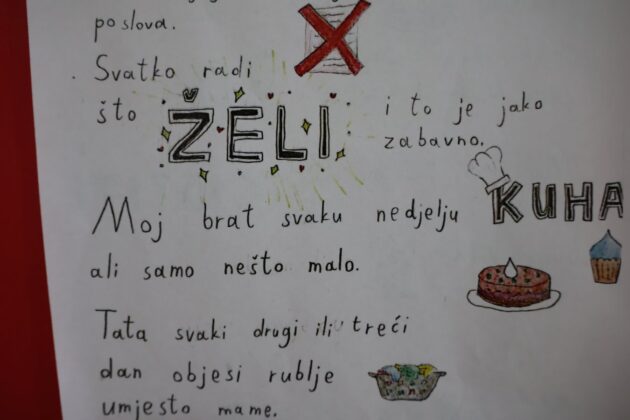 poslova.
Svatko radi
što ŽELI i to je jako
zabavno.
Moj brat svaku nedjelju KUHA
ali samo nešto malo.
Tata svaki drugi ili treći
dan objesi rublje
umjesto mame.